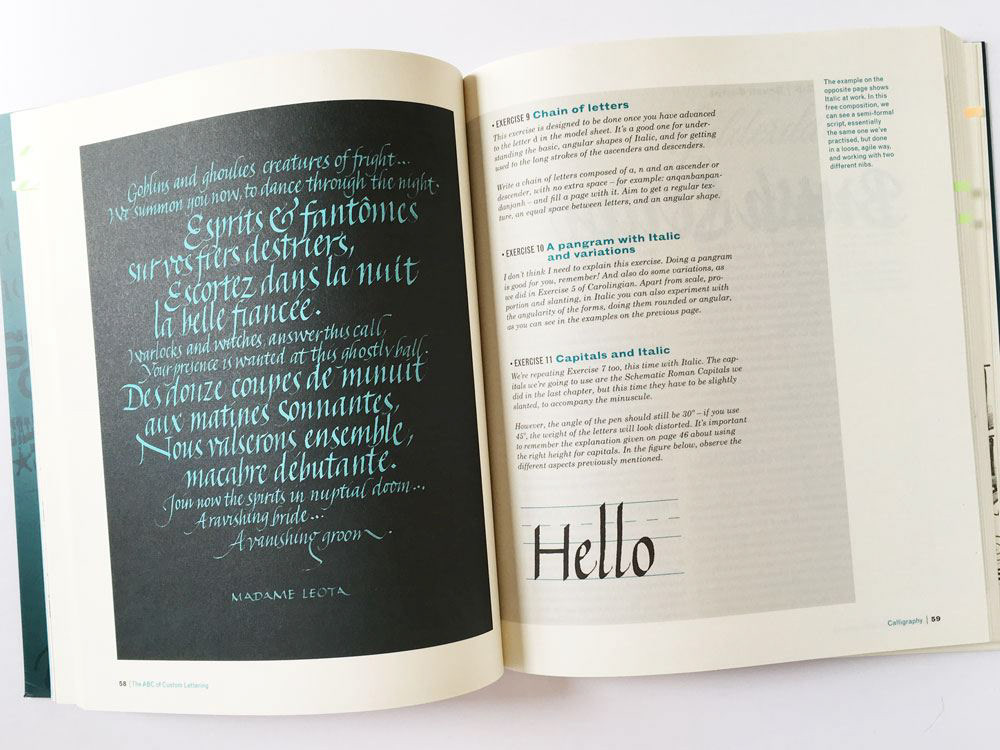 Goblins and ghoulies, creatures of fright...
We summon you now, to dance through the night.
Esprits & fantômes
sur vos fiers destriers,
Escortez dans la nuit
la belle fiancée.
Warlocks and witches, answer this call,
Your presence is wanted at this ghostly ball.
Des douze coupes de minuit
aux matines sonnantes,
Nous valserons ensemble,
macabre débutante.
Join now the spirits in nuptial doom...
A ravishing bride...
A vanishing groom
MADAME LEOTA
58 | The ABC of Custom Lettering
• EXERCISE 9 Chain of letters
This exercise is designed to be done once you have advanced
to the letter d in the model sheet. It's a good one for under-
standing the basic, angular shapes of Italic, and for getting
used to the long strokes of the ascenders and descenders.
Write a chain of letters composed of a, n and an ascender or
descender, with no extra space – for example: anqanbanpan-
danjanh – and fill a page with it. Aim to get a regular tex-
ture, an equal space between letters, and an angular shape.
• EXERCISE 10 A pangram with Italic
and variations
I don't think I need to explain this exercise. Doing a pangram
is good for you, remember! And also do some variations, as
we did in Exercise 5 of Carolingian. Apart from scale, pro-
portion and slanting, in Italic you can also experiment with
the angularity of the forms, doing them rounded or angular,
as you can see in the examples on the previous page.
• EXERCISE 11 Capitals and Italic
We're repeating Exercise 7 too, this time with Italic. The cap-
itals we're going to use are the Schematic Roman Capitals we
did in the last chapter, but this time they have to be slightly
slanted, to accompany the minuscule.
However, the angle of the pen should still be 30° – if you use
45°, the weight of the letters will look distorted. It's important
to remember the explanation given on page 46 about using
the right height for capitals. In the figure below, observe the
different aspects previously mentioned.
Hello
The example on the
opposite page shows
Italic at work. In this
free composition, we
can see a semi-formal
script, essentially
the same one we've
practised, but done
in a loose, agile way,
and working with two
different nibs.
Calligraphy | 59